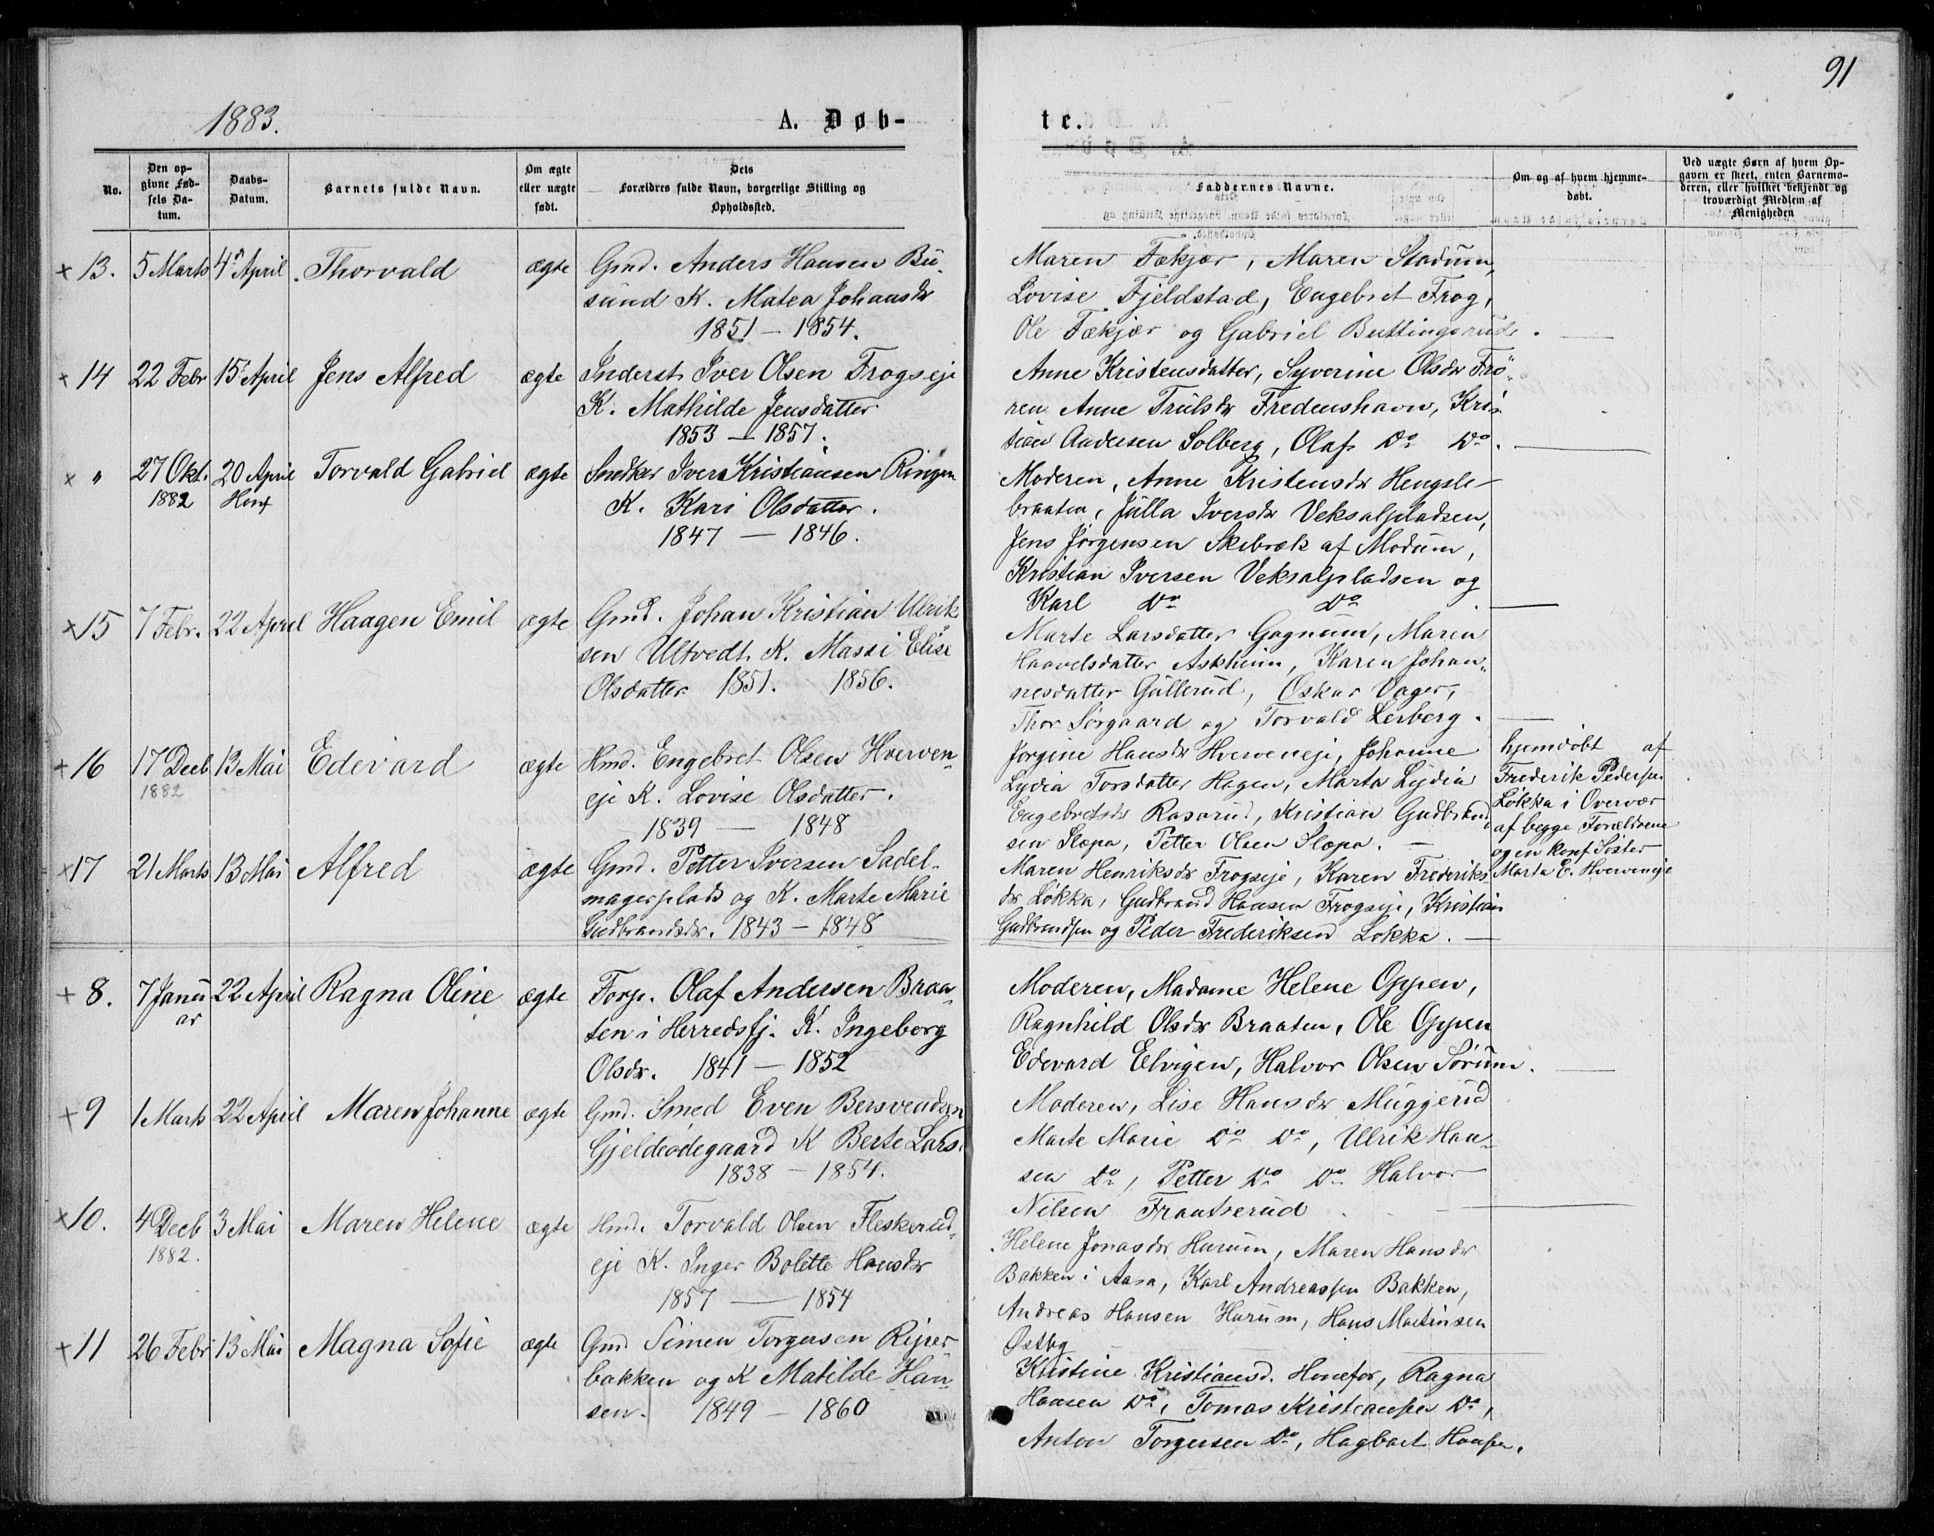 91
1883.
A. Døb-
te.
No.
Den op-
givne Fød-
sels Da-
tum.
Daabs-
Datum.
Barnets fulde Navn.
Om ægte
eller uægte
født.
Dets
Forældres fulde Navn, borgerlige Stilling og
Opholdssted.
Faddernes Navne.
Om og af hvem hjemme-
døbt.
Ved uægte Børn af hvem Op-
gaven er skeet, enten Barnemo-
deren, eller hvilket bekjendt og
troværdigt Medlem af
Menigheden
× 13. 5 Marts 4 April Thorvald ægte Gmd. Anders Hansen Bu-
sund K. Matea Johansdr
1851 – 1854.
Maren Fækjær, Maren Stadum,
Lovise Fjeldstad, Engebret Frog,
Ole Fækjær og Gabriel Buttingsrud.
× 14 22 Febr 15 April Jens Alfred ægte Inderst Iver Olsen Frogseje
K. Mathilde Jensdatter
1853 – 1857.
Anne Kristensdatter, Syverine Olsdr Frö-
ren Anne Trulsdr Fredenshavn, Kris
tian Andersen Solberg, Olaf Do Do.
× " 27 Okt. 20 April Torvald Gabriel ægte Snedker Iver Kristiansen Ringen
1882 Honf K. Kari Olsdatter.
1847 – 1846.
Moderen, Anne Kristensdr Hengsle-
braaten, Julla Iversdr Veksalpladsen,
Jens Jørgensen Skibræk af Modum,
Kristian Iversen Veksalpladsen og
Karl Do Do.
× 15 7 Febr. 22 April Haagen Emil ægte Gmd. Johan Kristian Ulrik
sen Ultvedt K. Massi Elise
Olsdatter 1851. 1856.
Marte Larsdatter Gagnum, Maren
Haavelsdatter Askheim, Karen Johan-
nesdatter Gullerud, Oskar Vager,
Thor Sørgaard og Torvald Lerberg.
+ 16 17 Decb 13 Mai Edevard ægte Hmd. Engebret Olsen Hverven-
1882 eje K. Lovise Olsdatter.
1839 – 1848
Jørgine Hansdr Hverveneje, Johanne
Lydia Torsdatter Hagen, Marta Lydia
Engebretsdr Rasarud, Kristian Gudbrand
sen Slæpa, Petter Olsen Slæpa. –
hjemdøbt af
Frederik Pedersen
Løkka i Overvær
af begge Forældrene
og en konf. Søster
Marta E. Hverveneje
× 17 21 Marts 13 Mai Alfred ægte Gmd. Petter Iversen Sadel-
magerplads og K. Marte Marie
Gudbrandsdr. 1843 – 1848
Maren Henriksdr Frogseje, Karen Frederiks
dr Løkka, Gudbrand Hansen Frogseje, Kristian
Gudbrandsen og Peder Frederiksen Løkka. –
+ 8. 7 Janu 22 April Ragna Oline ægte Forp. Olaf Andersen Braa-
ar ten i Herredsfj. K. Ingeborg
Olsdr. 1841 – 1852
Moderen, Madame Helene Oppen,
Ragnhild Olsdr Braaten, Ole Oppen
Edevard Elvigen, Halvor Olsen Sørum.
+ 9 1 Marts 22 April Maren Johanne ægte Gmd. Smed Even Bersvendsen
Gjeldeødegaard K Berte Lars.
1838 – 1854.
Moderen, Lise Hansdr Muggerud
Marte Marie Do Do, Ulrik Han-
sen Do, Petter Do Do Halvor
Nilsen Frantserud
× 10. 4 Decb 3 Mai Maren Helene ægte Hmd. Torvald Olsen Fleskerud-
1882. eje K. Inger Bolette Hansdr
1857 – 1854
Helene Jonasdr Hurum, Maren Hansdr
Bakken i Aasa, Karl Andreassen Bakken,
Andreas Hansen Hurum, Hans Martinsen
Østby
+ 11 26 Febr 13 Mai Magna Sofie ægte Gmd. Simen Torgersen Rejser-
bakken og K Matilde Han-
sen. 1849 – 1860
Kristine Kristiansd. Hønefos, Ragna
Hansen Do, Tomas Kristiansen Do,
Anton Torgersen Do, Hagbart Hansen.